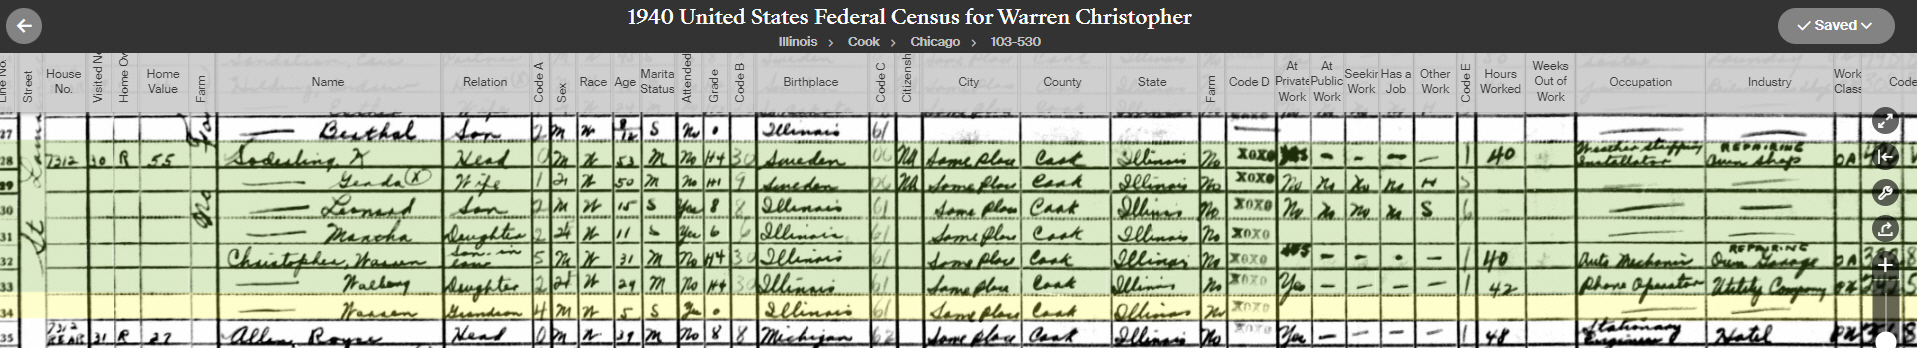 1940 United States Federal Census for Warren Christopher
Saved
Illinois > Cook > Chicago > 103-530
Line No. Street House No. Visited N Home Ow Home Value Farm Name Relation Code A Sex Race Age Marita Status Attended Grade Code B Birthplace Code C Citizensh City County State Farm Code D At Private Work At Public Work Seekin Work Has a Job Other Work Code E Hours Worked Weeks Out of Work Occupation Industry Work Class Code
27 — Son 2 M W 8/12 S No 0 Illinois 61
28 7312 30 R 55 Head 0 M W 53 M No H4 30 Sweden NA Same Place Cook Illinois No X0X0 Yes - - - - 1 40 Weather stripping Installator REPAIRING Own Shop OA
29 — Wife 1 W 50 M No H1 9 Sweden NA Same Place Cook Illinois No X0X0 No No No No H 5
30 — Leonard Son 2 M W 15 S Yes 8 8 Illinois 61 Same Place Cook Illinois No X0X0 No No No No S 6
31 — Daughter 2 W 11 S Yes 6 6 Illinois 61 Same Place Cook Illinois No X0X0
32 Christopher, Warren Son-in law 5 M W 31 M No H4 30 Illinois 61 Same Place Cook Illinois No X0X0 Yes - - - - 1 40 Auto Mechanic REPAIRING Own Garage OA
33 — Daughter 2 W 29 M No H4 30 Illinois 61 Same Place Cook Illinois No X0X0 Yes - - - - 1 42 Phone Operator Utility Company PW
34 — Warren Grandson 4 M W 5 S Yes 0 Illinois 61 Same Place Cook Illinois No X0X0
35 7312 REAR 31 R 27 Allen, Head 0 M W 39 M No 8 8 Michigan 62 Same Place Cook Illinois No X0X0 Yes - - - - 1 48 Stationary Engineer Hotel PW
St
No